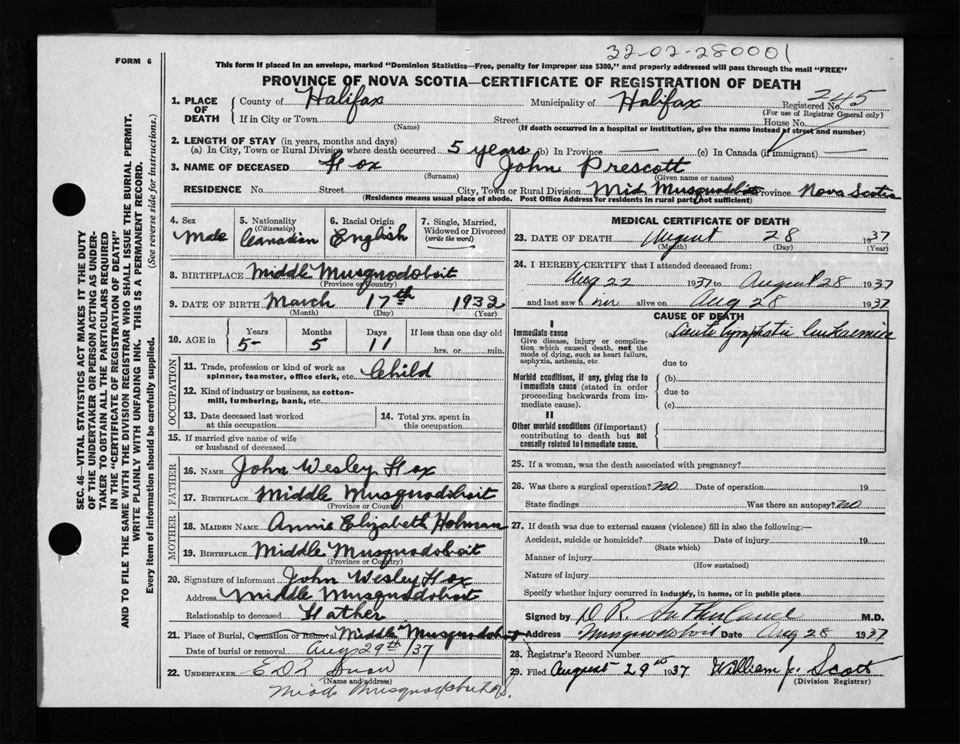 32-02-280001
FORM 6
This form if placed in an envelope, marked "Dominion Statistics—Free, penalty for improper use $300," and properly addressed will pass through the mail "FREE"
PROVINCE OF NOVA SCOTIA—CERTIFICATE OF REGISTRATION OF DEATH
SEC. 46—VITAL STATISTICS ACT MAKES IT THE DUTY
OF THE UNDERTAKER OR PERSON ACTING AS UNDER-
TAKER TO OBTAIN ALL THE PARTICULARS REQUIRED
IN THE "CERTIFICATE OF REGISTRATION OF DEATH"
AND TO FILE THE SAME WITH THE DIVISION REGISTRAR WHO SHALL ISSUE THE BURIAL PERMIT.
WRITE PLAINLY WITH UNFADING INK. THIS IS A PERMANENT RECORD.
Every item of information should be carefully supplied. (See reverse side for instructions.)
1. PLACE OF DEATH
County of Halifax Municipality of Halifax Registered No. 245
(For use of Registrar General only)
If in City or Town Street House No.
(Name) (If death occurred in a hospital or institution, give the name instead of street and number)
2. LENGTH OF STAY (in years, months and days)
(a) In City, Town or Rural Division where death occurred 5 years (b) In Province (c) In Canada (if immigrant)
3. NAME OF DECEASED Fox John Prescott
(Surname) (Given name or names)
RESIDENCE No. Street City, Town or Rural Division Mid Musquodoboit Province Nova Scotia
(Residence means usual place of abode. Post Office Address for residents in rural parts not sufficient)
4. Sex Male
5. Nationality (Citizenship) Canadian
6. Racial Origin English
7. Single, Married, Widowed or Divorced (write the word)
8. BIRTHPLACE Middle Musquodoboit
(Province or Country)
9. DATE OF BIRTH March 17th 1932
(Month) (Day) (Year)
10. AGE in Years Months Days If less than one day old
5 5 11 hrs. or min.
OCCUPATION
11. Trade, profession or kind of work as spinner, teamster, office clerk, etc. Child
12. Kind of industry or business, as cotton-mill, lumbering, bank, etc.
13. Date deceased last worked at this occupation
14. Total yrs. spent in this occupation
15. If married give name of wife or husband of deceased
FATHER
16. NAME John Wesley Fox
17. BIRTHPLACE Middle Musquodoboit
(Province or Country)
MOTHER
18. MAIDEN NAME Annie Elizabeth Holman
19. BIRTHPLACE Middle Musquodoboit
(Province or Country)
20. Signature of informant John Wesley Fox
Address Middle Musquodoboit
Relationship to deceased Father
21. Place of Burial, Cremation or Removal Middle Musquodoboit
Date of burial or removal Aug 29th/37
22. UNDERTAKER
(Name and address)
MEDICAL CERTIFICATE OF DEATH
23. DATE OF DEATH August 28 1937
(Month) (Day)
24. I HEREBY CERTIFY that I attended deceased from:
Aug 22 1937 to August 28 1937
and last saw him alive on Aug 28 1937
CAUSE OF DEATH
I
Immediate cause (a) Acute lymphatic leukaemia
Give disease, injury or complication which caused death, not the mode of dying, such as heart failure, asphyxia, asthenia, etc.
due to
Morbid conditions, if any, giving rise to immediate cause (stated in order proceeding backwards from immediate cause).
(b)
due to
(c)
II
Other morbid conditions (if important) contributing to death but not causally related to immediate cause.
25. If a woman, was the death associated with pregnancy?
26. Was there a surgical operation? no Date of operation 19
State findings Was there an autopsy? no
27. If death was due to external causes (violence) fill in also the following:—
Accident, suicide or homicide? Date of injury 19
(State which)
Manner of injury
(How sustained)
Nature of injury
Specify whether injury occurred in industry, in home, or in public place
Signed by D R Sutherland M.D.
Address Musquodoboit Date Aug 28 1937
28. Registrar's Record Number
29. Filed August 29th 1937 William J. Scott
(Division Registrar)